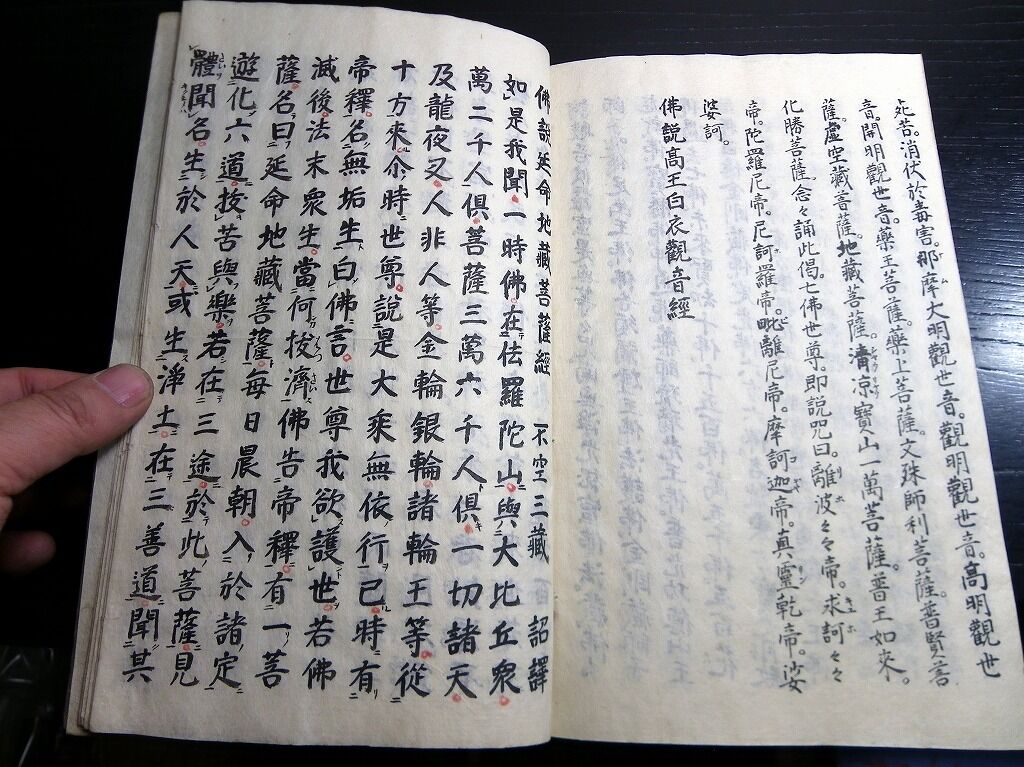 死苦。消伏於毒害。那摩大明觀世音。觀明觀世音。高明觀世
音。開明觀世音。藥王菩薩。藥上菩薩。文珠師利菩薩。普賢菩
薩。虚空藏菩薩。地藏菩薩。清凉寶山一萬菩薩。普王如來。
化勝菩薩。念々誦此偈。七佛世尊。即説咒曰。離波々々帝。求訶々々
帝。陀羅尼帝。尼訶羅帝。毗離尼帝。摩訶迦帝。真靈乾帝。娑
娑訶。
佛説高王白衣觀音經
佛説延命地藏菩薩經 不空三藏 詔譯
如是我聞一時佛在佉羅陀山與大比丘衆
萬二千人俱菩薩三萬六千人俱一切諸天
及龍夜叉人非人等金輪銀輪諸輪王等從
十方來尒時世尊說是大乘無依行已時有
帝釋名無垢生白佛言世尊我欲護世若佛
滅後法末衆生當何拔濟佛告帝釋有一菩
薩名曰延命地藏菩薩每日晨朝入於諸定
遊化六道拔苦與樂若在三途於此菩薩見
體聞名生於人天或生淨土在三善道聞其